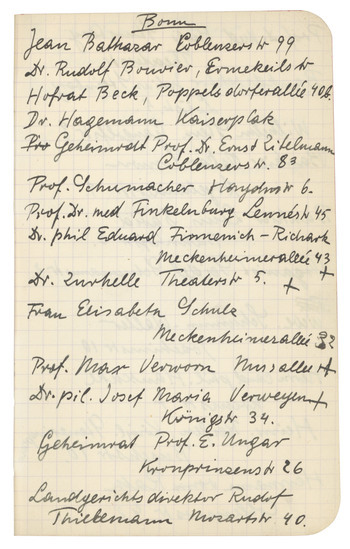 Bonn
Jean Balthazar Coblenzerstr 99
Dr. Rudolf Bouvier, Ermekeilstr
Hofrat Beck, Poppelsdorferallée 40b.
Dr. Hagemann Kaiserplatz
Pro Geheimrat Prof. Dr. Ernst Zitelmann
Coblenzerstr. 83
Prof. Schumacher Haydnstr 6.
Prof. Dr. med Finkelnburg Lennéstr 45
Dr. phil Eduard Firmenich-Richartz
Meckenheimerallée 43
Dr. Zurhelle Theaterstr 5. +
Frau Elisabeth Schulz
Meckenheimerallée
Prof. Max Verworn Nussallee +
Dr. pil. Josef Maria Verweyen +
Königstr 34.
Geheimrat Prof. E. Ungar
Kronprinzenstr 26
Landgerichtsdirektor Rudolf
Thielemann Mozartstr 40.